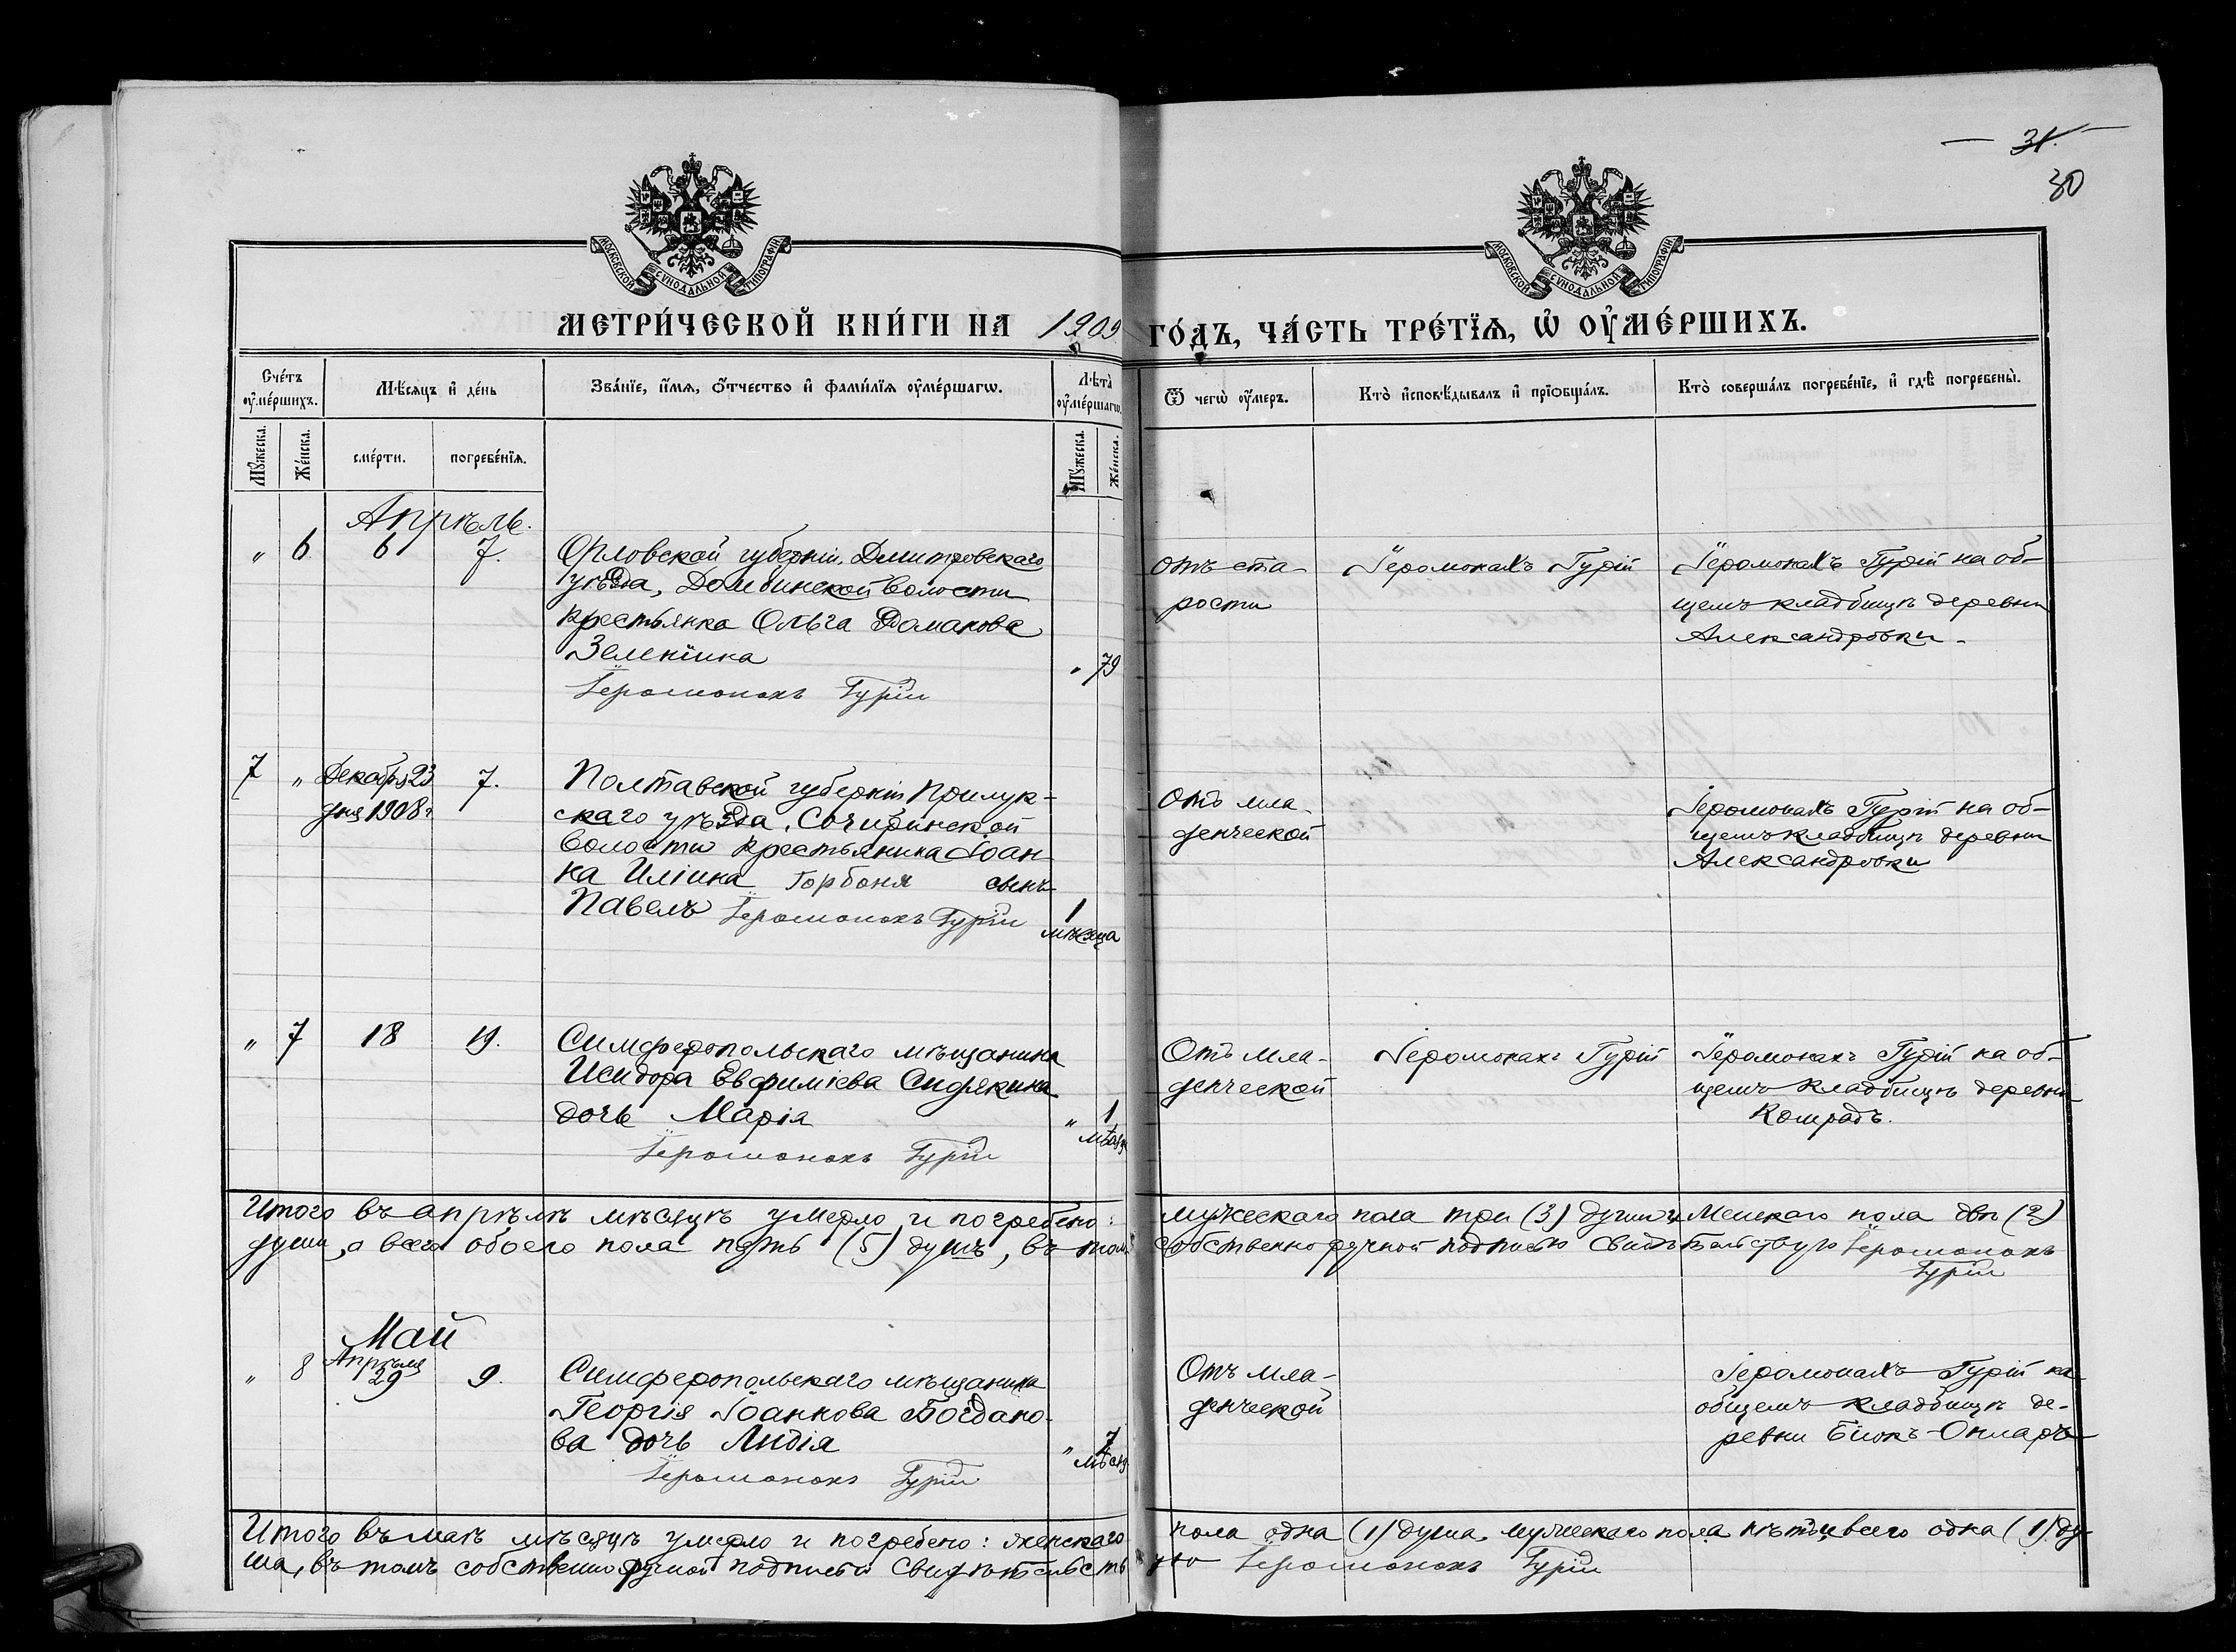 — 31. —
30
МОСКОВСКОЙ СѴНОДАЛЬНОЙ ТИПОГРАФІИ
МОСКОВСКОЙ СѴНОДАЛЬНОЙ ТИПОГРАФІИ
МЕТРИ́ЧЕСКОЙ КНИ́ГИ НА 1909 ГО́ДЪ, ЧА́СТЬ ТРЕ́ТЇѦ, Ѡ҆ ОУ҆МЕ́РШИХЪ.
Сче́тъ оу҆ме́ршихъ.
Мѣ́сяцъ и҆ де́нь
Зва́нїе, и҆́мя, ѻ҆́тчество и҆ фами́лїя оу҆ме́ршагѡ.
Лѣ́та оу҆ме́ршагѡ.
Ѿ чегѡ̀ оу҆́меръ.
Кто̀ и҆сповѣ́дывалъ и҆ прїѻбща́лъ.
Кто̀ соверша́лъ погребе́нїе, и҆ гдѣ̀ погребены̀.
Мꙋ́жеска.
Же́нска.
сме́рти.
погребе́нїя.
Мꙋ́жеска.
Же́нска.
Апрѣль.
„ 6. 6 7.
Орловской губерніи, Дмитровскаго
уѣзда, Домбинской волости
крестьянка Ольга Романова
Зеленіина
„ 79
Іеромонахъ Гурій
отъ ста-
рости
Іеромонахъ Гурій
Іеромонахъ Гурій на об-
щемъ кладбищѣ деревни
Александровки.
7 „ Декабря 23
дня 1908 г 7.
Полтавской губерніи Прилук-
скаго уѣзда,
волости крестьянина Іоан-
на Иліина Горбоня сынъ
Павелъ Іеромонахъ Гурій
1
мѣсяца
Отъ мла-
денческой
Іеромонахъ Гурій на об-
щемъ кладбищѣ деревни
Александровки
„ 7 18 19.
Симферопольскаго мѣщанина
Исидора Евфиміева Сидякина
дочь Марія
„ 1
мѣсяц
Іеромонахъ Гурій
Отъ мла-
денческой
Іеромонахъ Гурій
Іеромонахъ Гурій на об-
щемъ кладбищѣ деревни
Комрадъ.
Итого въ апрѣлѣ мѣсяцѣ умерло и погребено: мужескаго пола три (3) души, женскаго пола двѣ (2)
души, а всего обоего пола пять (5) душъ, въ томъ собственноручной подписью свидѣтельствую Іеромонахъ
Гурій
Май
„ 8 Апрѣля
29 9.
Симферопольскаго мѣщанина
Георгія Іоаннова Богдано-
ва дочь Лидія
„ 7
мѣсяц
Іеромонахъ Гурій
Отъ мла-
денческой
Іеромонахъ Гурій на
общемъ кладбищѣ де-
ревни Біюкъ-Онларъ
Итого въ маѣ мѣсяцѣ умерло и погребено: женскаго пола одна (1) душа, мужескаго пола нѣтъ, и всего одна (1) ду-
ша, въ томъ собственноручной подписью свидѣтельств ую Іеромонахъ Гурій